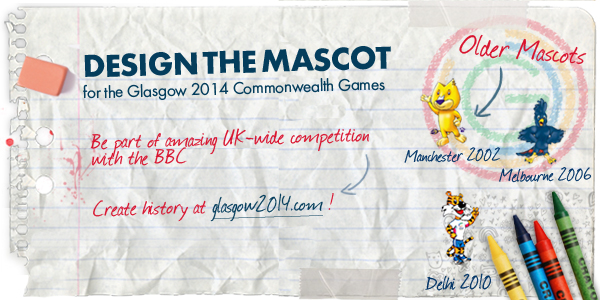 DESIGN THE MASCOT
for the Glasgow 2014 Commonwealth Games
Be part of amazing UK-wide competition
with the BBC
Create history at glasgow2014.com !
Older Mascots
Manchester 2002
Melbourne 2006
Delhi 2010